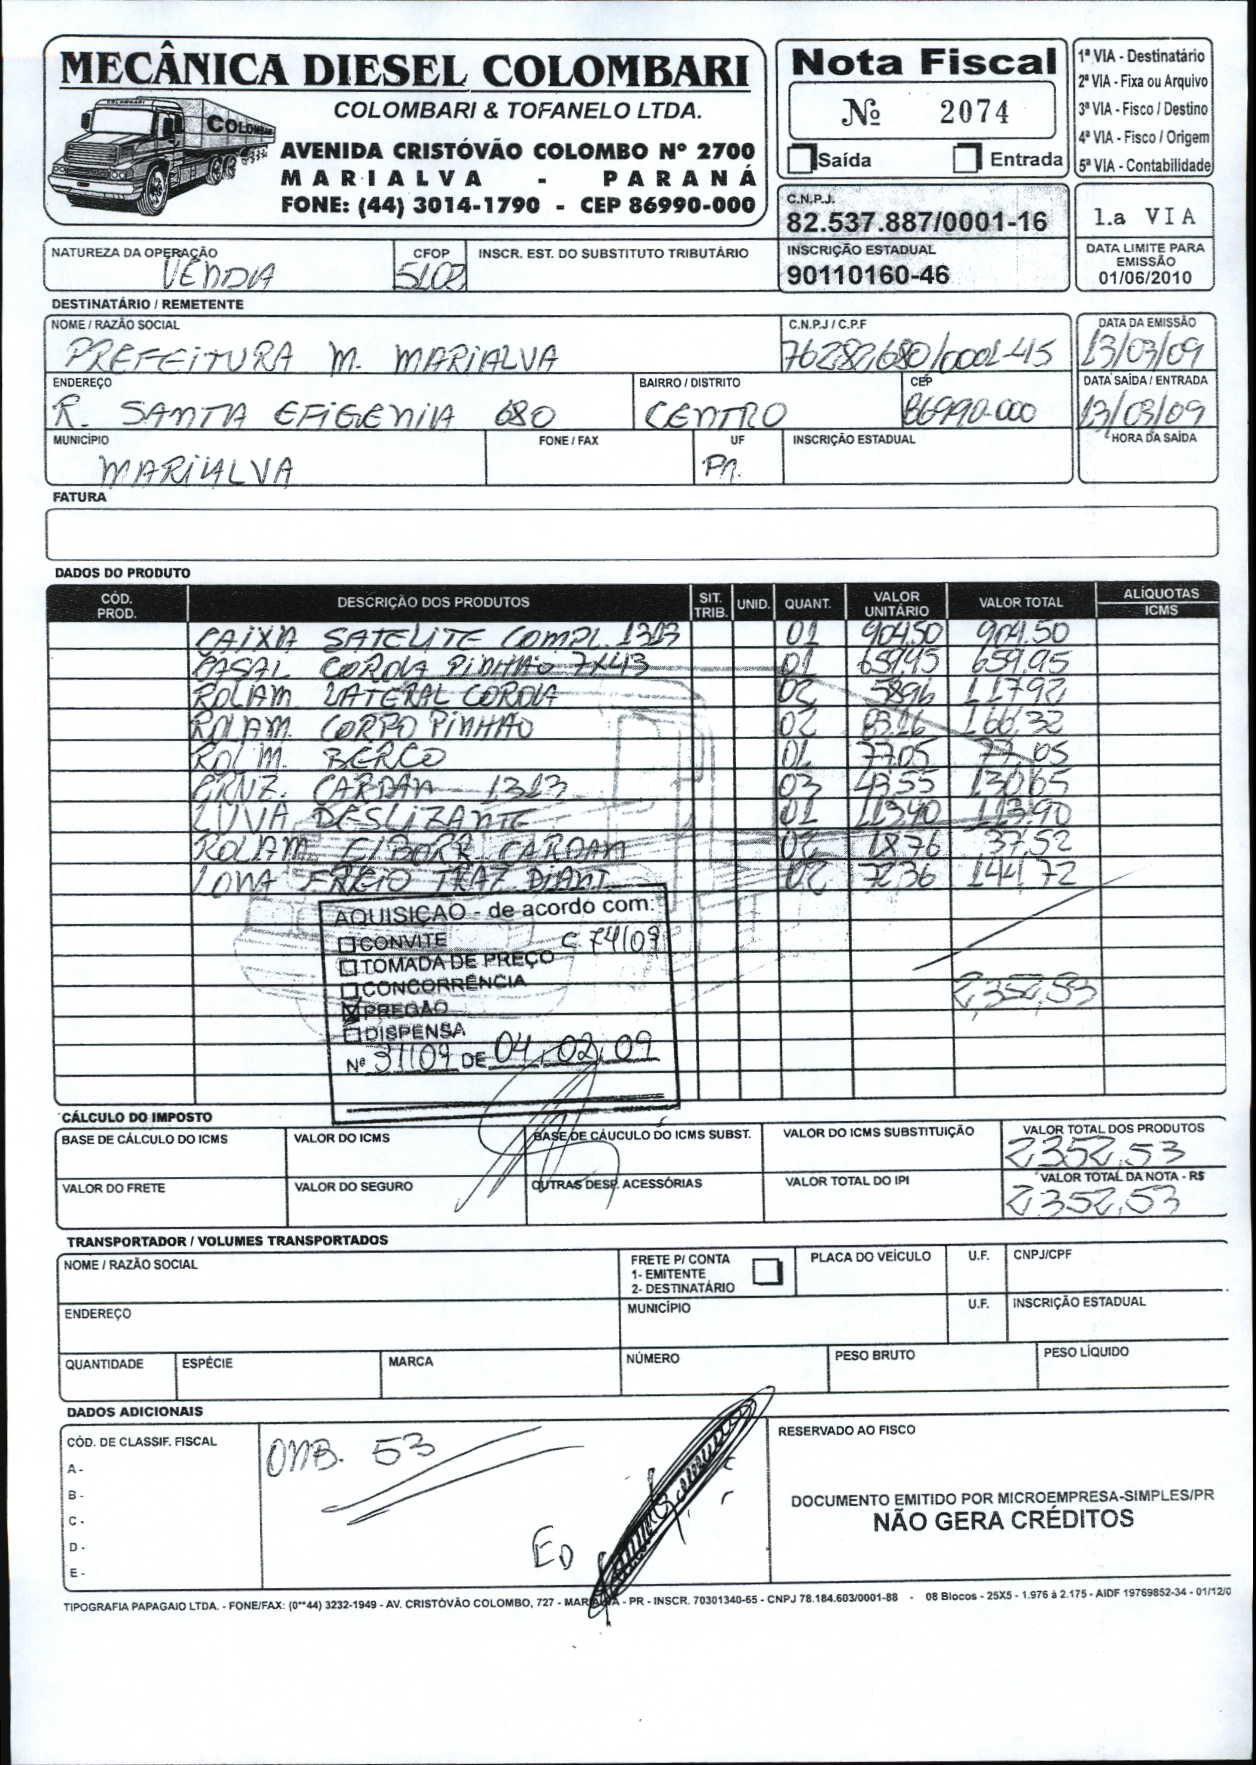 MECÂNICA DIESEL COLOMBARI
COLOMBARI & TOFANELO LTDA.
COLOMBARI
AVENIDA CRISTÓVÃO COLOMBO Nº 2700
MARIALVA - PARANÁ
FONE: (44) 3014-1790 - CEP 86990-000
Nota Fiscal
Nº 2074
Saída Entrada
1ª VIA - Destinatário
2ª VIA - Fixa ou Arquivo
3ª VIA - Fisco / Destino
4ª VIA - Fisco / Origem
5ª VIA - Contabilidade
C.N.P.J.
82.537.887/0001-16
INSCRIÇÃO ESTADUAL
90110160-46
1.a VIA
DATA LIMITE PARA
EMISSÃO
01/06/2010
NATUREZA DA OPERAÇÃO CFOP INSCR. EST. DO SUBSTITUTO TRIBUTÁRIO
VENDA 5102
DESTINATÁRIO / REMETENTE
NOME / RAZÃO SOCIAL C.N.P.J / C.P.F DATA DA EMISSÃO
PREFEITURA M. MARIALVA 76282680/0001-45 13/03/09
ENDEREÇO BAIRRO / DISTRITO CEP DATA SAÍDA / ENTRADA
R. SANTA EFIGENIA 680 CENTRO 86990-000 13/03/09
MUNICÍPIO FONE / FAX UF INSCRIÇÃO ESTADUAL HORA DA SAÍDA
MARIALVA Pr.
FATURA
DADOS DO PRODUTO
CÓD. PROD. DESCRIÇÃO DOS PRODUTOS SIT. TRIB. UNID. QUANT. VALOR UNITÁRIO VALOR TOTAL ALÍQUOTAS ICMS
CAIXA SATELITE COMPL. 1313 01 904,50 904,50
CASAL COROA PINHAO 7X43 01 659,95 659,95
ROLAM. LATERAL COROA 02 58,96 117,92
ROLAM. CORPO PINHAO 02 83,16 166,32
ROLM. BERCO 01 77,05 77,05
CRUZ. CARDAN 1313 03 43,55 130,65
LUVA DESLIZANTE 01 113,90 113,90
ROLAM C/BORR. CARDAN 02 18,76 37,52
LONA FREIO TRAZ DIANT. 02 72,36 144,72
AQUISIÇÃO - de acordo com:
CONVITE C 74/09
TOMADA DE PREÇO
CONCORRÊNCIA
PREGÃO
DISPENSA
Nº 31/09 DE 04.02.09
2,352,53
CÁLCULO DO IMPOSTO
BASE DE CÁLCULO DO ICMS VALOR DO ICMS BASE DE CÁUCULO DO ICMS SUBST. VALOR DO ICMS SUBSTITUIÇÃO VALOR TOTAL DOS PRODUTOS
2352,53
VALOR DO FRETE VALOR DO SEGURO OUTRAS DESP. ACESSÓRIAS VALOR TOTAL DO IPI VALOR TOTAL DA NOTA - R$
2,352,53
TRANSPORTADOR / VOLUMES TRANSPORTADOS
NOME / RAZÃO SOCIAL FRETE P/ CONTA PLACA DO VEÍCULO U.F. CNPJ/CPF
1- EMITENTE
2- DESTINATÁRIO
ENDEREÇO MUNICÍPIO U.F. INSCRIÇÃO ESTADUAL
QUANTIDADE ESPÉCIE MARCA NÚMERO PESO BRUTO PESO LÍQUIDO
DADOS ADICIONAIS
CÓD. DE CLASSIF. FISCAL
A -
B -
C -
D -
E -
ONB. 53
ED
RESERVADO AO FISCO
DOCUMENTO EMITIDO POR MICROEMPRESA-SIMPLES/PR
NÃO GERA CRÉDITOS
TIPOGRAFIA PAPAGAIO LTDA. - FONE/FAX: (0**44) 3232-1949 - AV. CRISTÓVÃO COLOMBO, 727 - MARIALVA - PR - INSCR. 70301340-65 - CNPJ 78.184.603/0001-88 - 08 Blocos - 25X5 - 1.976 à 2.175 - AIDF 19769852-34 - 01/12/0